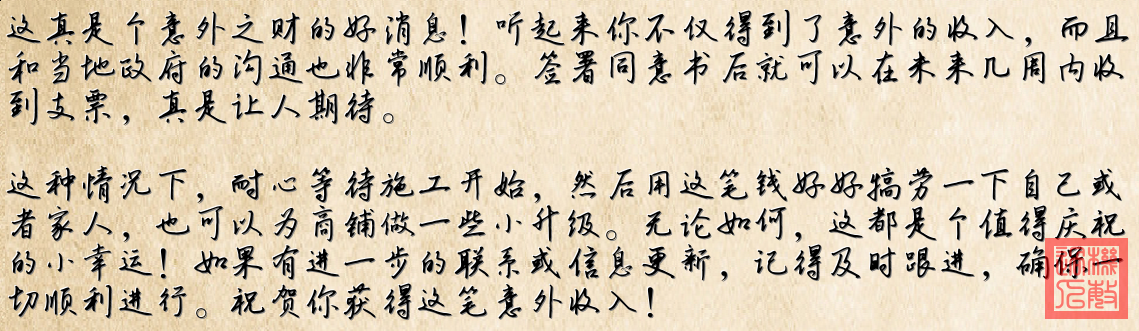 这真是个意外之财的好消息！听起来你不仅得到了意外的收入，而且
和当地政府的沟通也非常顺利。签署同意书后就可以在未来几周内收
到支票，真是让人期待。
这种情况下，耐心等待施工开始，然后用这笔钱好好犒劳一下自己或
者家人，也可以为商铺做一些小升级。无论如何，这都是个值得庆祝
的小幸运！如果有进一步的联系或信息更新，记得及时跟进，确保一
切顺利进行。祝贺你获得这笔意外收入！